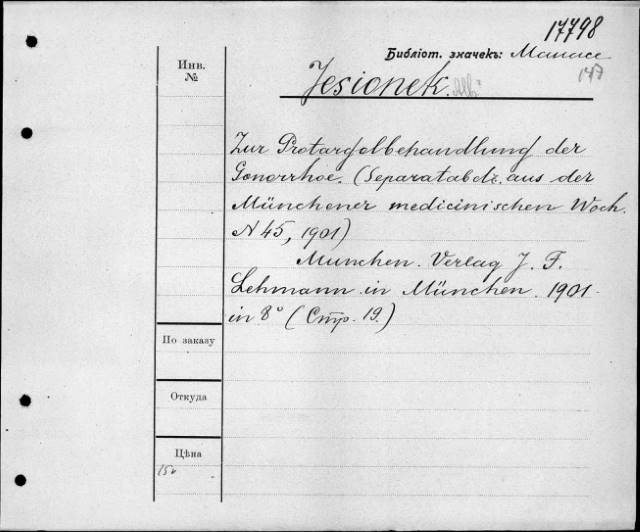 17798
Библіот. значекъ:
147
Инв.
№
Jesionek.
Zur Protargolbehandlung der
Gonorrhoe. (Separatabdz. aus der
Münchener medicinischen Woch.
N 45, 1901)
Munchen. Verlag J. F.
Lehmann in München. 1901.
in 8° (Стр. 19.)
По заказу
Откуда
Цѣна